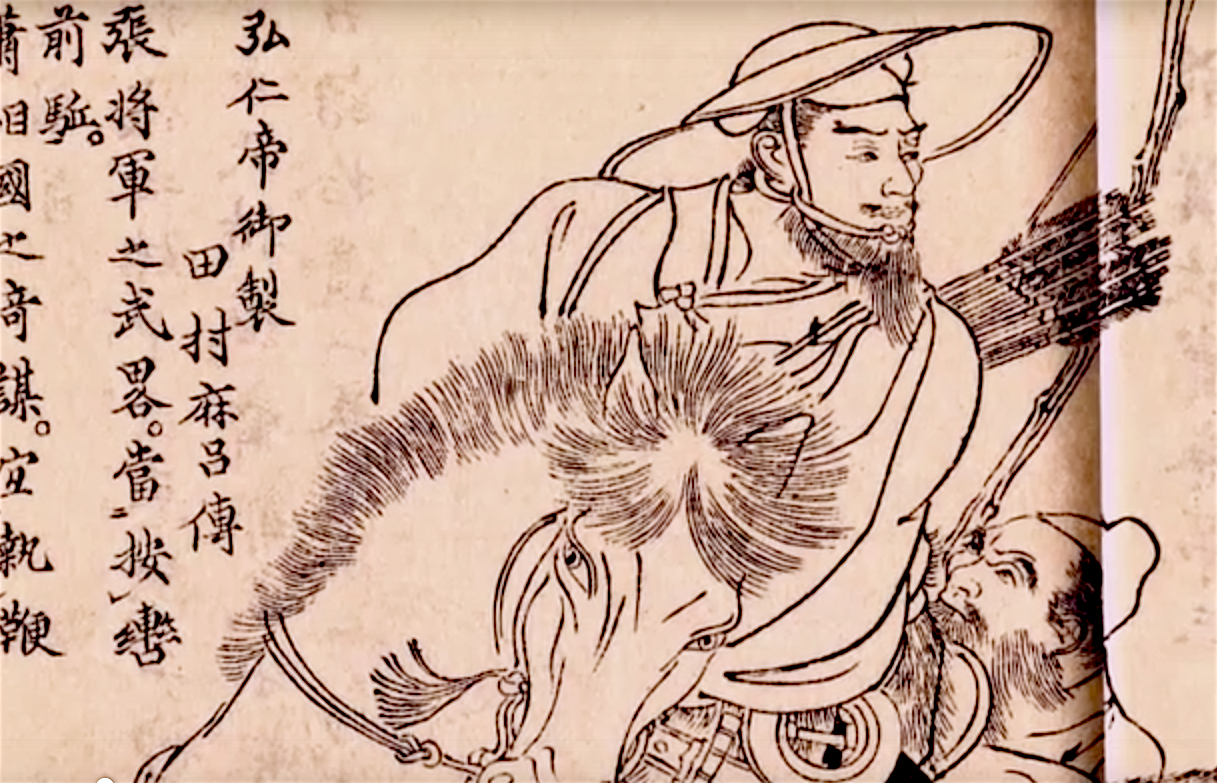 弘仁帝御製
田村麻呂傳
張將軍之武畧。當按轡
前駈。
蕭相國之奇謀。宜執鞭